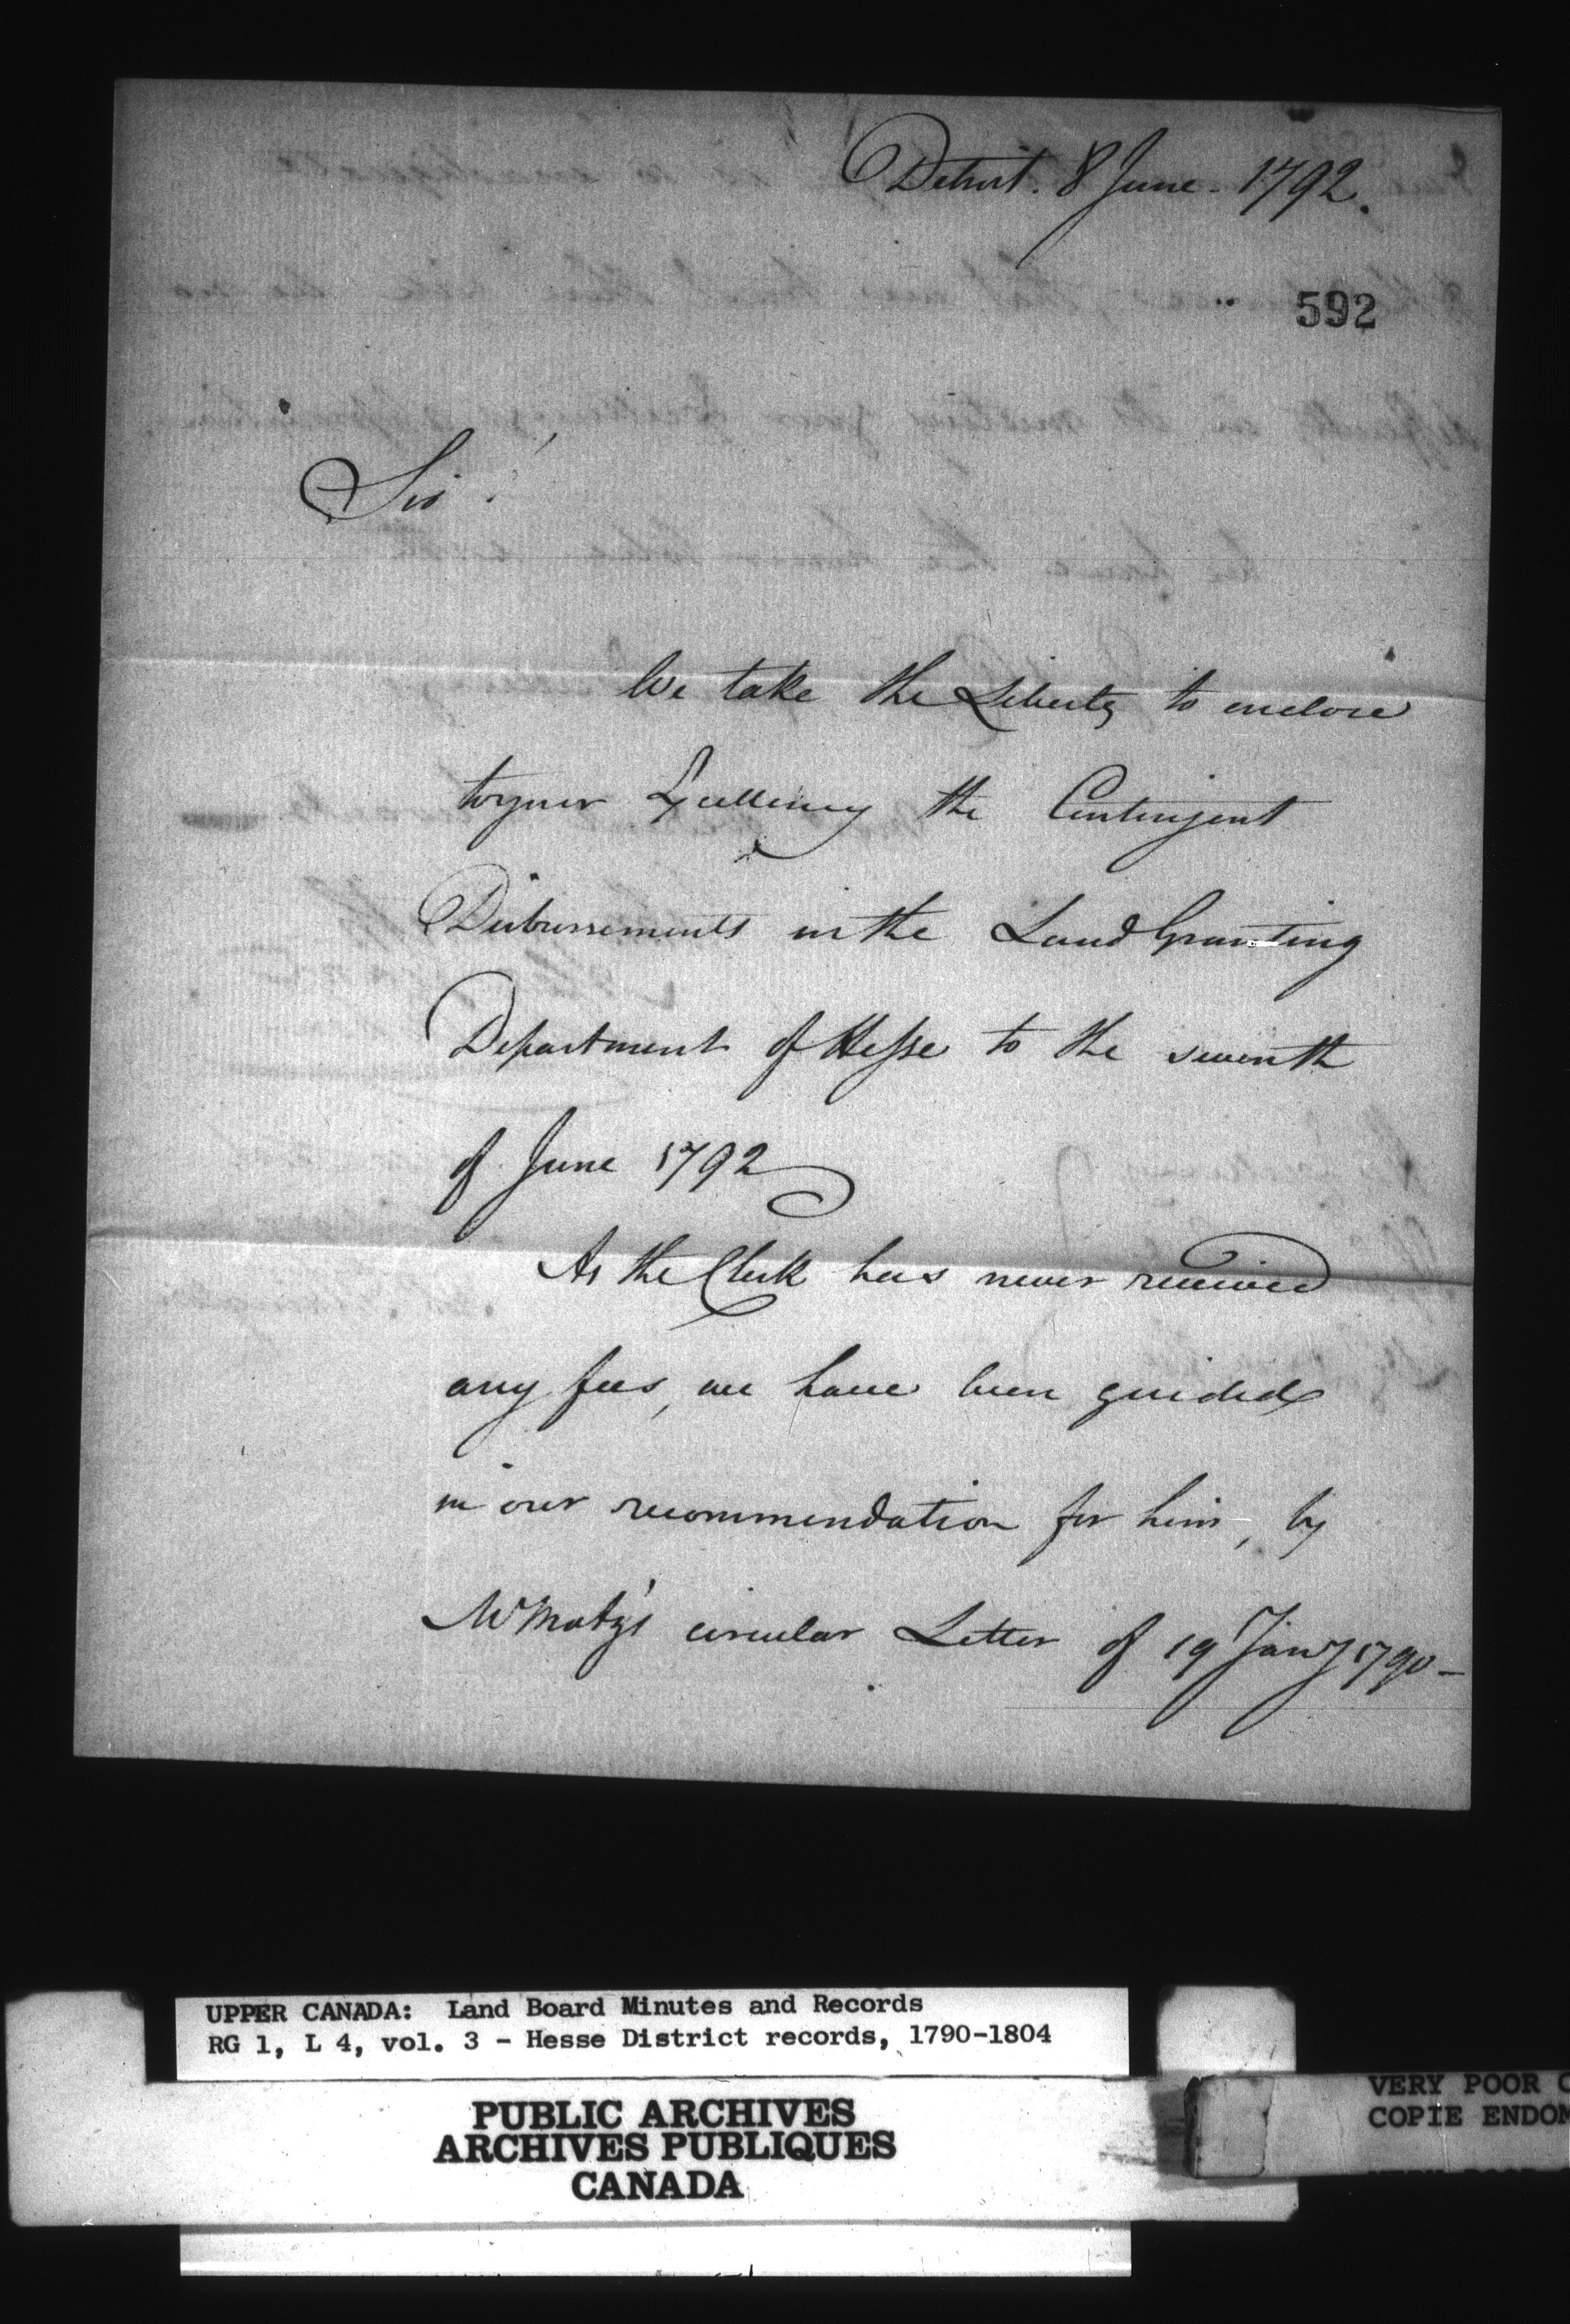 Detroit. 8 June - 1792.
592
Sir!
We take the Liberty to enclose
to your Excellency the Contingent
Disbursements in the Land Granting
Department of Hesse to the seventh
of June 1792
As the Clerk has never received
any fees, we have been guided
in our recommendation for him, by
Mr Motz's circular Letter of 19 Jany 1790-
UPPER CANADA: Land Board Minutes and Records
RG 1, L 4, vol. 3 - Hesse District records, 1790-1804
PUBLIC ARCHIVES
ARCHIVES PUBLIQUES
CANADA
VERY POOR C
COPIE ENDOM